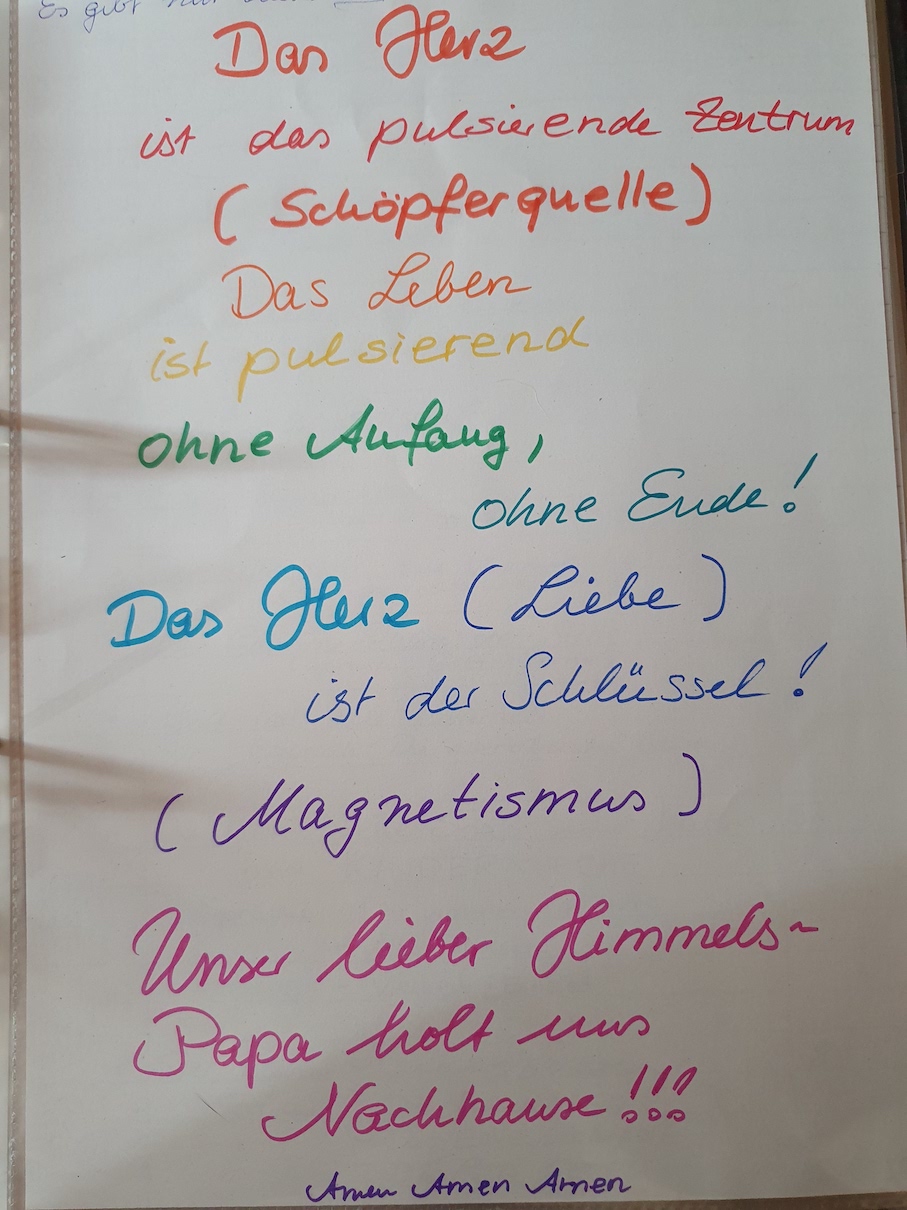 Es gibt nur
Das Herz
ist das pulsierende Zentrum
(Schöpferquelle)
Das Leben
ist pulsierend
ohne Anfang,
ohne Ende!
Das Herz (Liebe)
ist der Schlüssel!
(Magnetismus)
Unser lieber Himmels-
Papa holt uns
Nachhause!!!
Amen Amen Amen